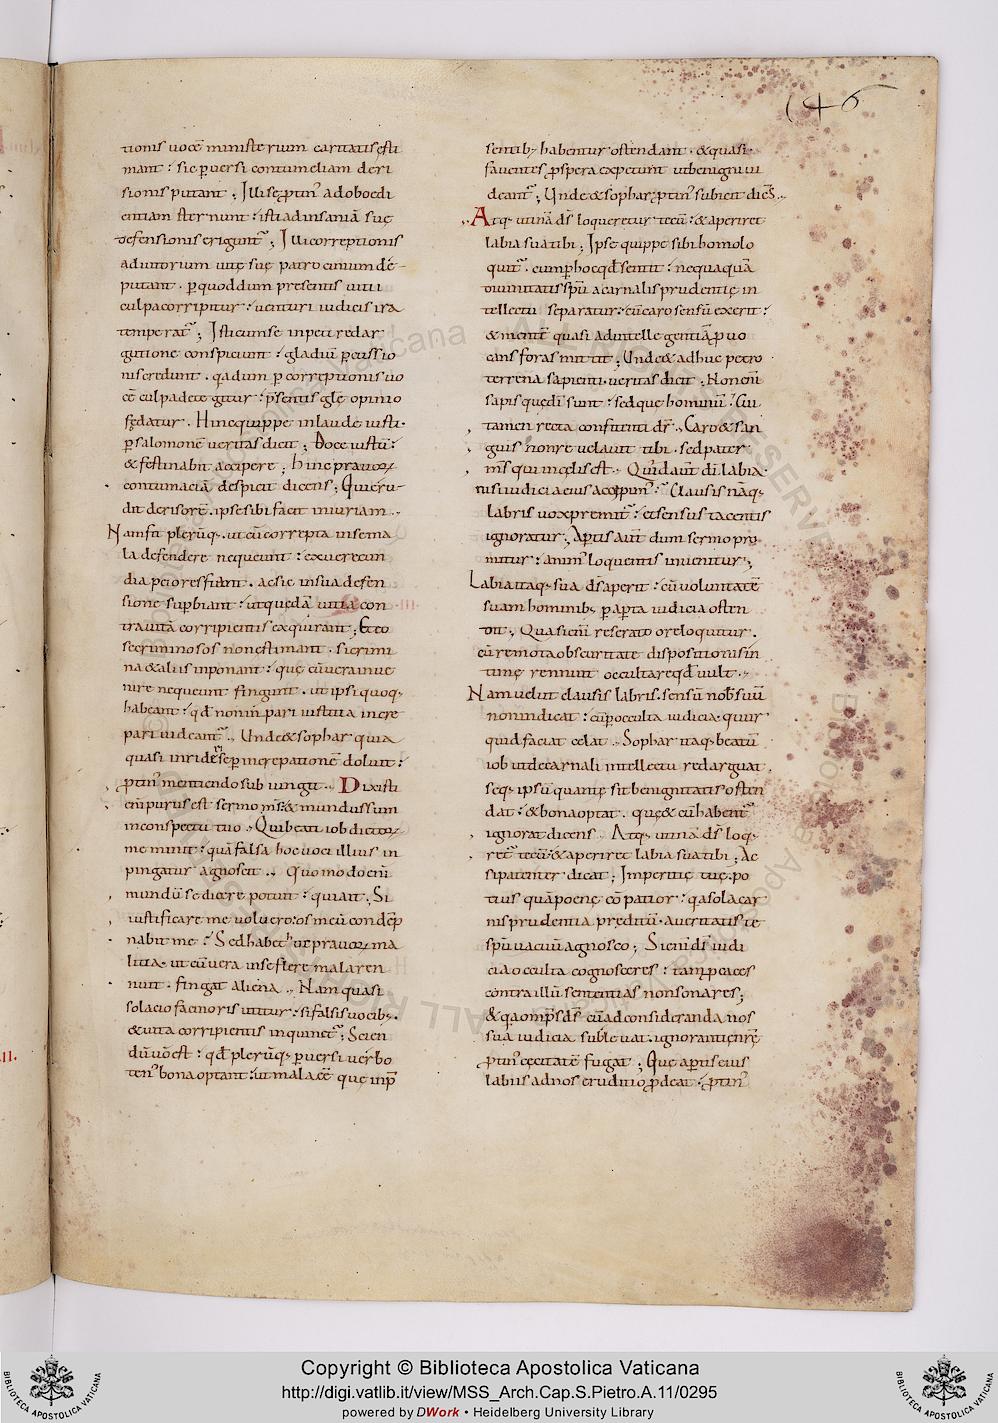 146
tionis uoce ministerium caritatis esti
mant : sic puersi contumeliam deri
sionis putant ; Illi se ptin' ad oboedi
entiam sternunt : isti ad insaniā suę
defensionis eriguntᷣ ; Illi correptionis
adiutorium uitę suę patrocinium de
putant . p quod dum presentis uitii
culpa corripitur : uenturi iudicis ira
temperatᷣ ; Isti cum se inpeti redar
gutione conspiciunt : gladiū pcussio
nis credunt . qa dum p correptionis uo
cē culpa detegitur : psentis glę opinio
fędatur . Hinc quippe in laude iusti
p salomonē ueritas dicit ; Doce iustū :
& festinabit accipere ; hinc prauoꝝ
contumaciā despicit dicens ; Qui eru
dit derisorē . ipse sibi facit iniuriam .
Nam fit plerūq; . ut cū correpta in se ma
la defendere nequeunt : ex uerecun
dia peiores fiunt . ac sic in sua defen
sione supbiant : ut quędā uitia con
tra uitā corripientis exquirant ; Et eo
se criminosos non estimant . si crimi
na & aliis inponant : quę cū uera inue
nire nequeunt fingunt . ut ipsi quoq;
habeant : qđ non inpari iustitia incre
pari uideantᷣ . Unde & sophar quia
quasi inridēs se p increpationē doluit :
ptin' mentiendo subiungit . Dixisti
enī purus est sermo ms : & mundus sum
in conspectu tuo . Qui beati iob dictoꝝ
meminit : quā falsa hoc uoci illius in
pingatur agnoscit . Quomodo enī
mundū se dicere potuit : qui ait . Si
iustificare me uoluero : os meū condēp
nabit me : Sed habet h ut prauoꝝ ma
litia . ut cū uera in se flere mala ren
nuit . fingat aliena . Nam quasi
solacio facinoris utitur : si falsis uocib; .
& uita corripientis inquinetᷣ ; Scien
dū uo est : qđ plerūq; puersi uerbo
ten' bona optant : ut mala ēē quę inp
sentib; habentur ostendant . & quasi
fauentes pspera expetunt ut benigni ui
deantᷣ ; Unde & sophar ptin' subicit dicēs .
Atq; utinā dſ loqueretur tecū : & aperiret
labia sua tibi ; Ipse quippe sibi homo lo
quitᷣ . cum p hoc qđ sentit : nequaquā
diuinitatis spū a carnalis prudentię in
tellectu separatur : cū caro sensū exerit :
& mentē quasi ad intellegentiā puo
cans foras mittit ; Unde & adhuc petro
terrena sapienti . ueritas dicit ; Non enī
sapis quę dī sunt : sed quę hominū . Cui
tamen recta confitenti dr . Caro & san
guis non reuelauit tibi . sed pater
ms qui in cęlis est . Quid aut dī labia
nisi iudicia eius accipim' : Clausis nāq;
labris uox premitᷣ : et sensus tacentis
ignoratur . Aptis aut dum sermo pro
mitur : anim' loquentis inuenitur .
Labia itaq; sua dſ aperit : cū uoluntatē
suam hominib; p apta iudicia osten
dit . Quasi enī reserato ore loquitur .
cū remota obscuritate dispositionis in
timę rennuit occultare qđ uult .
Nam uelut clausis labris . sensū nob suū
non indicat : cū p occulta iudicia . qđ cur
quid faciat celat . Sophar itaq; beatū
iob ut de carnali intellectu redarguat .
seq; ipsū quantę sit benignitatis osten
dat : & bona optat . quę & cū habentᷣ
ignorat dicens . Atq; utinā dſ loq;
retᷣ tecū : & aperiret labia sua tibi ; Ac
si patenter dicat ; Imperitię tuę . po
tius quā poenę cōpatior : qa sola car
nis prudentia preditū . a ueritatis te
spū uacuū agnosco ; Si enī dī iudi
cia occulta cognosceres : tam peaces
contra illū sententias non sonares ;
& qa omps dſ cū ad consideranda nos
sua iudicia subleuat . ignorantię nrę
ptin' cęcitatē fugat ; Quę aptis eius
labiis ad nos eruditio pdeat : ptin'
II.
Copyright © Biblioteca Apostolica Vaticana
http://digi.vatlib.it/view/MSS_Arch.Cap.S.Pietro.A.11/0295
powered by DWork • Heidelberg University Library